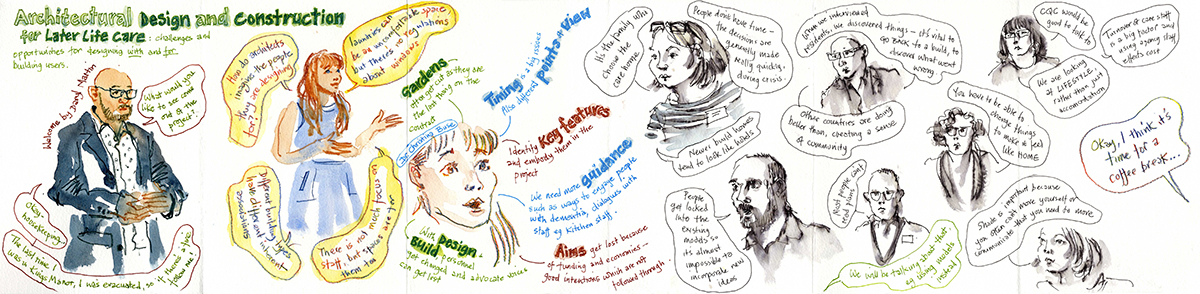 Architectural Design and Construction
for Later Life care: challenges and
opportunities for designing with and for
building users.
Welcome by Daryl Martin
What would you
like to see come
out of the
project?
Okay -
housekeeping.
The last time I
was in Kings Manor, I was evacuated, so if there's a fire
follow me!
How do architects
imagine the people
they are designing
for?
Laundries can
be an uncomfortable space
but there's no regulations
about windows
Different building types
have different inherent
associations
There is not much focus on
staff, but spaces are for
them too
Dr Christina Buse
Gardens
often get cut as they are
the last thing on the
contract
Timing is a big issues
Also different points of view
Identify Key features
and embody them in the
project
We need more guidance
such as ways to engage people
with dementia, dialogue with
staff eg Kitchen staff.
With Design +
Build personnel
get changed and advocate voices
can get lost
Aims get lost because
of funding and economies -
good intentions which are not
followed through
It's the family who
choose the
care home
People dont have time -
the decisions are
generally made
really quickly,
during crisis.
Newer build homes
tend to look like hotels
People
get locked
into the
existing
models so
its almost
impossible to
incorporate new
ideas
When we interviewed
residents, we discovered things - it's vital to
go back to a build, to
discover what went
wrong.
Other countries are doing
better than, creating a sense
of community
Most people guy
good plans
We will be talking about that
eg using models
instead
CQC would be
good to talk to
Turnover of care staff
is a big factor and
using agency staff
effects care
We are looking
at LIFESTYLE
rather than just
accomodation
You have to be able to
change things
to make it feel
like HOME
Shade is important because
you often cant move yourself or
communicate that you need to move
Okay, I think it's
time for a
coffee break...